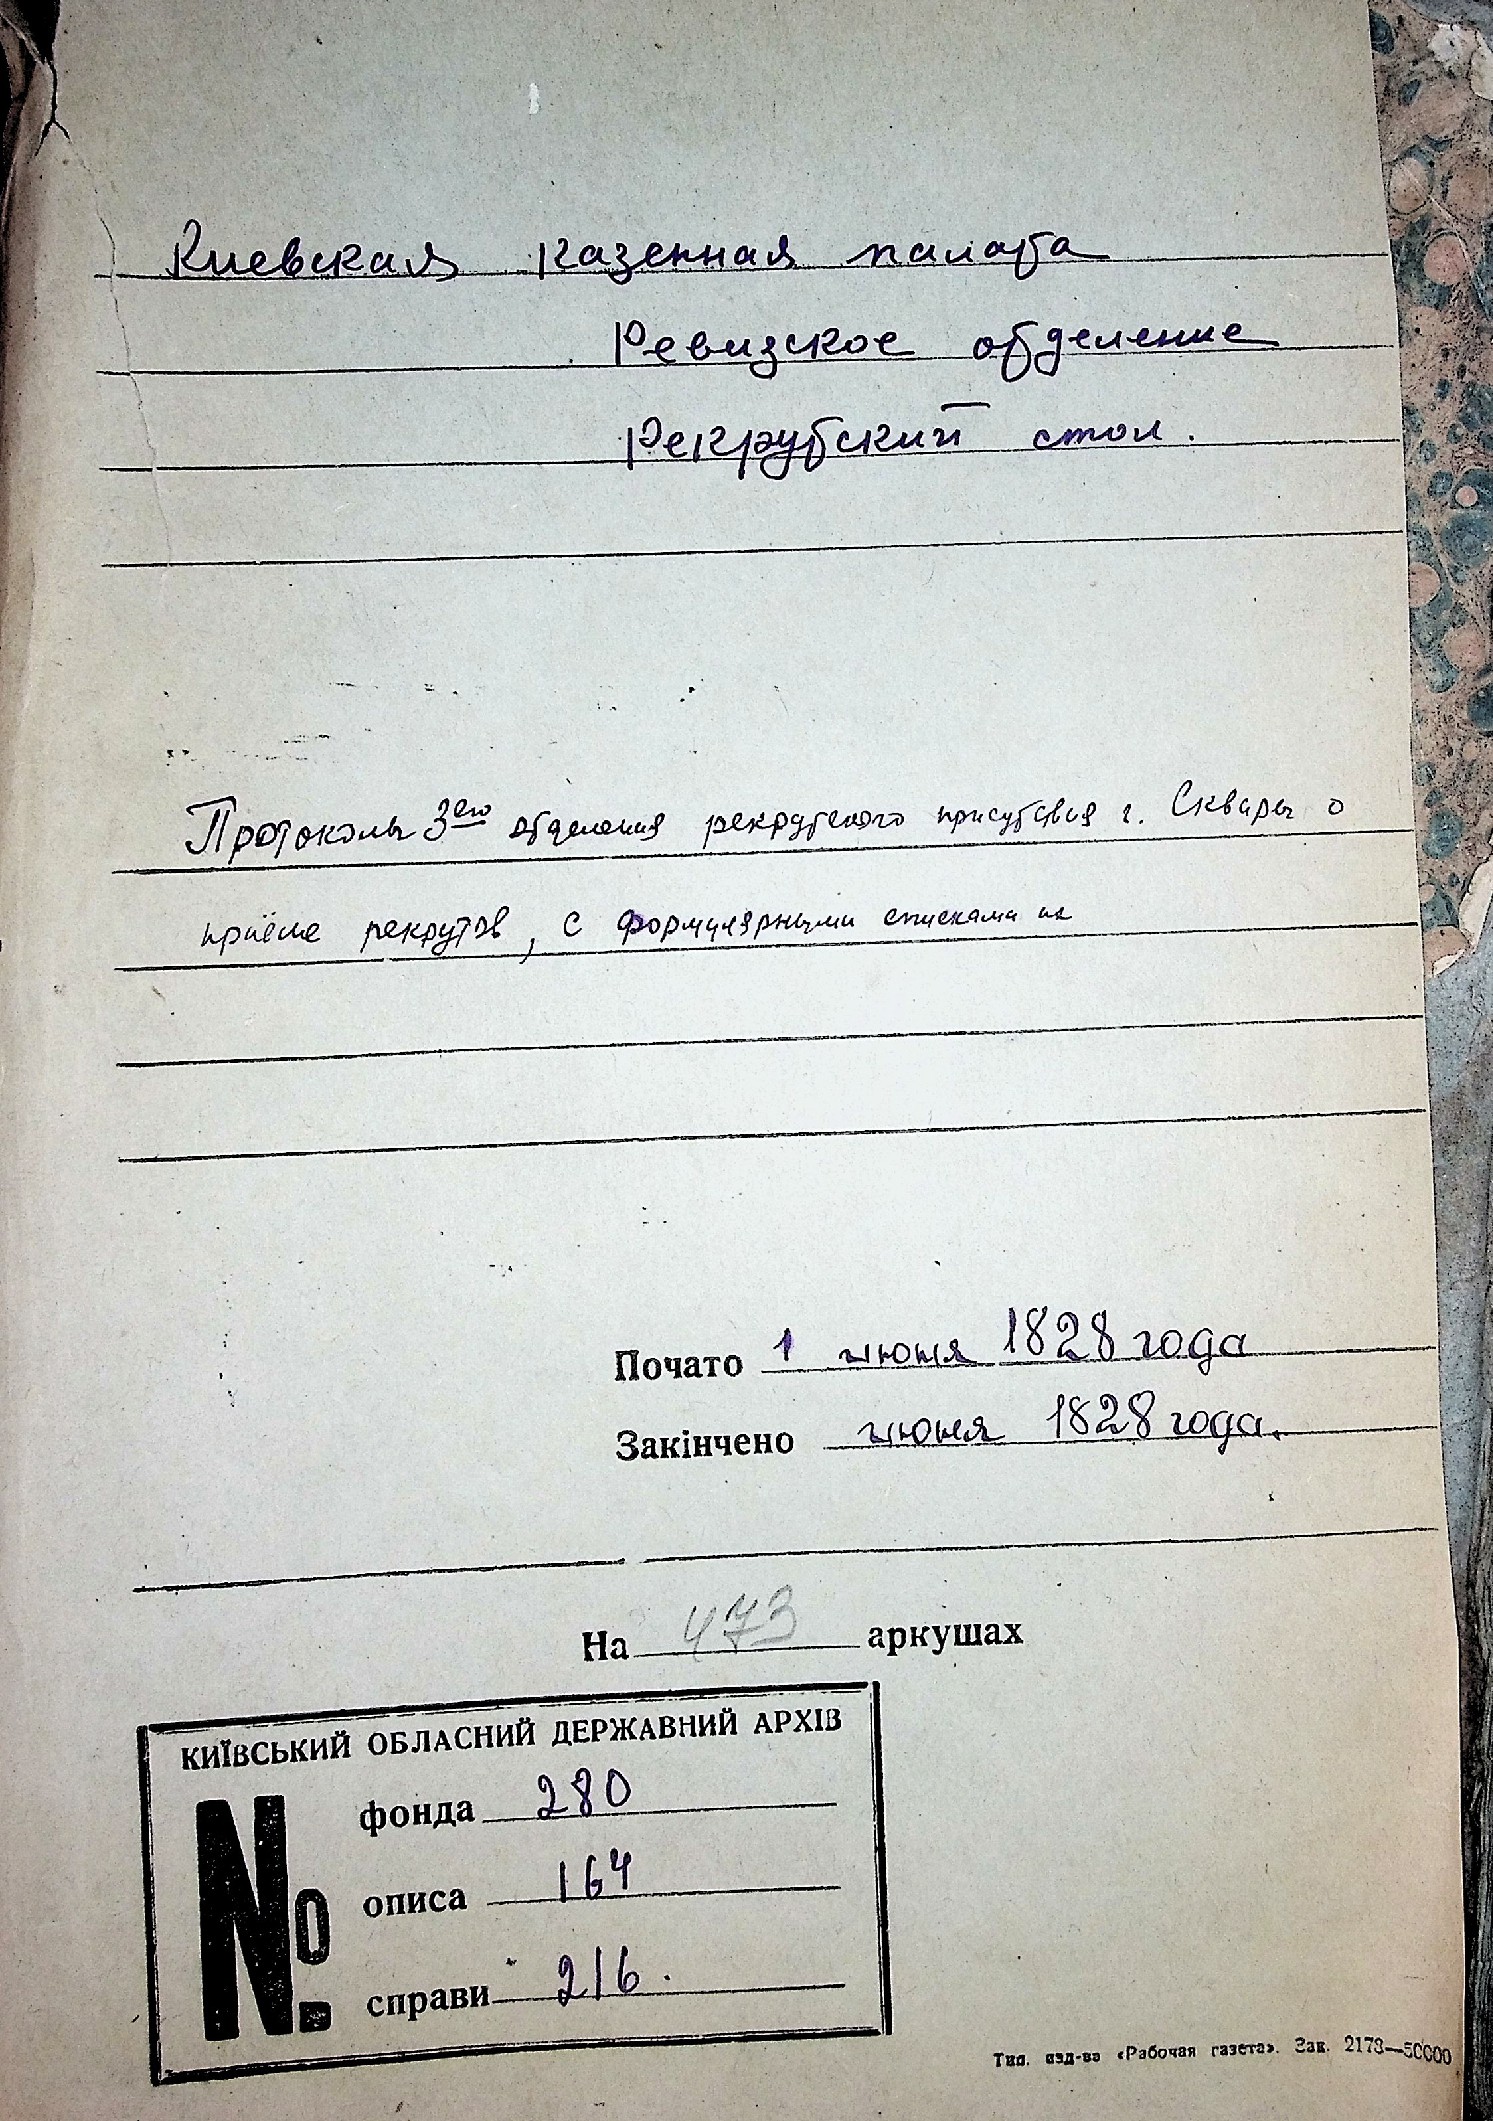 Киевская казенная палата
Ревизское отделение
Рекрутский стол.
Протоколы 3его отделения рекрутского присутствия г. Сквиры о
приёме рекрутов, с формулярными списками их
Почато 1 июня 1828 года
Закінчено июня 1828 года.
На 473 аркушах
КИЇВСЬКИЙ ОБЛАСНИЙ ДЕРЖАВНИЙ АРХІВ
№
фонда 280
описа 164
справи 216.
Тип. изд-ва «Рабочая газета». Зак. 2173—50000